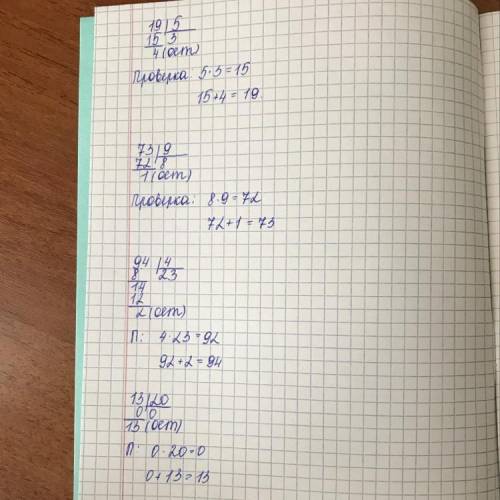 19|5
15 3
4(ост)
Проверка 5·3=15
15+4=19.
73|9
72 8
1(ост)
Проверка: 8·9=72
72+1=73
94|4
8 23
14
12
2(ост)
П: 4·23=92
92+2=94
13|20
0 0
13(ост)
П: 0·20=0
0+13=13